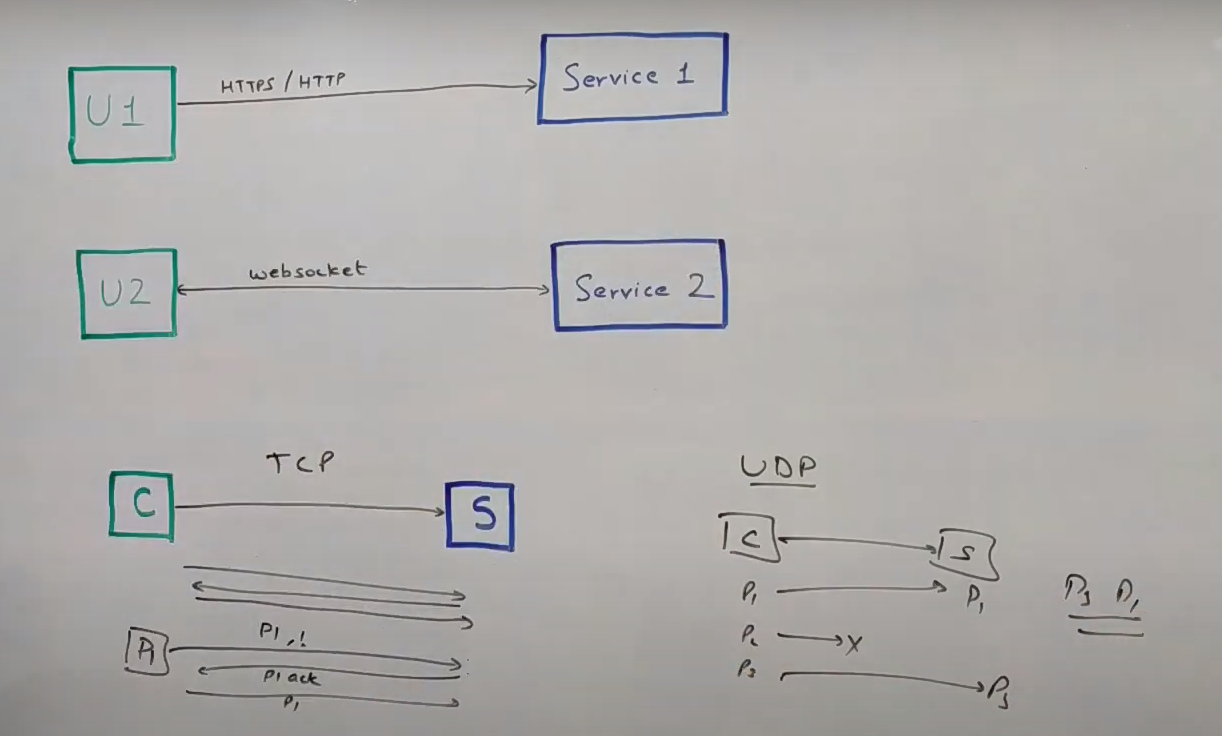 HTTPS / HTTP
U1
Service 1
websocket
U2
Service 2
TCP
C
S
P1
P1 ack
P1
UDP
C
S
P1
P1
P2
X
P3
P3
P3 P1